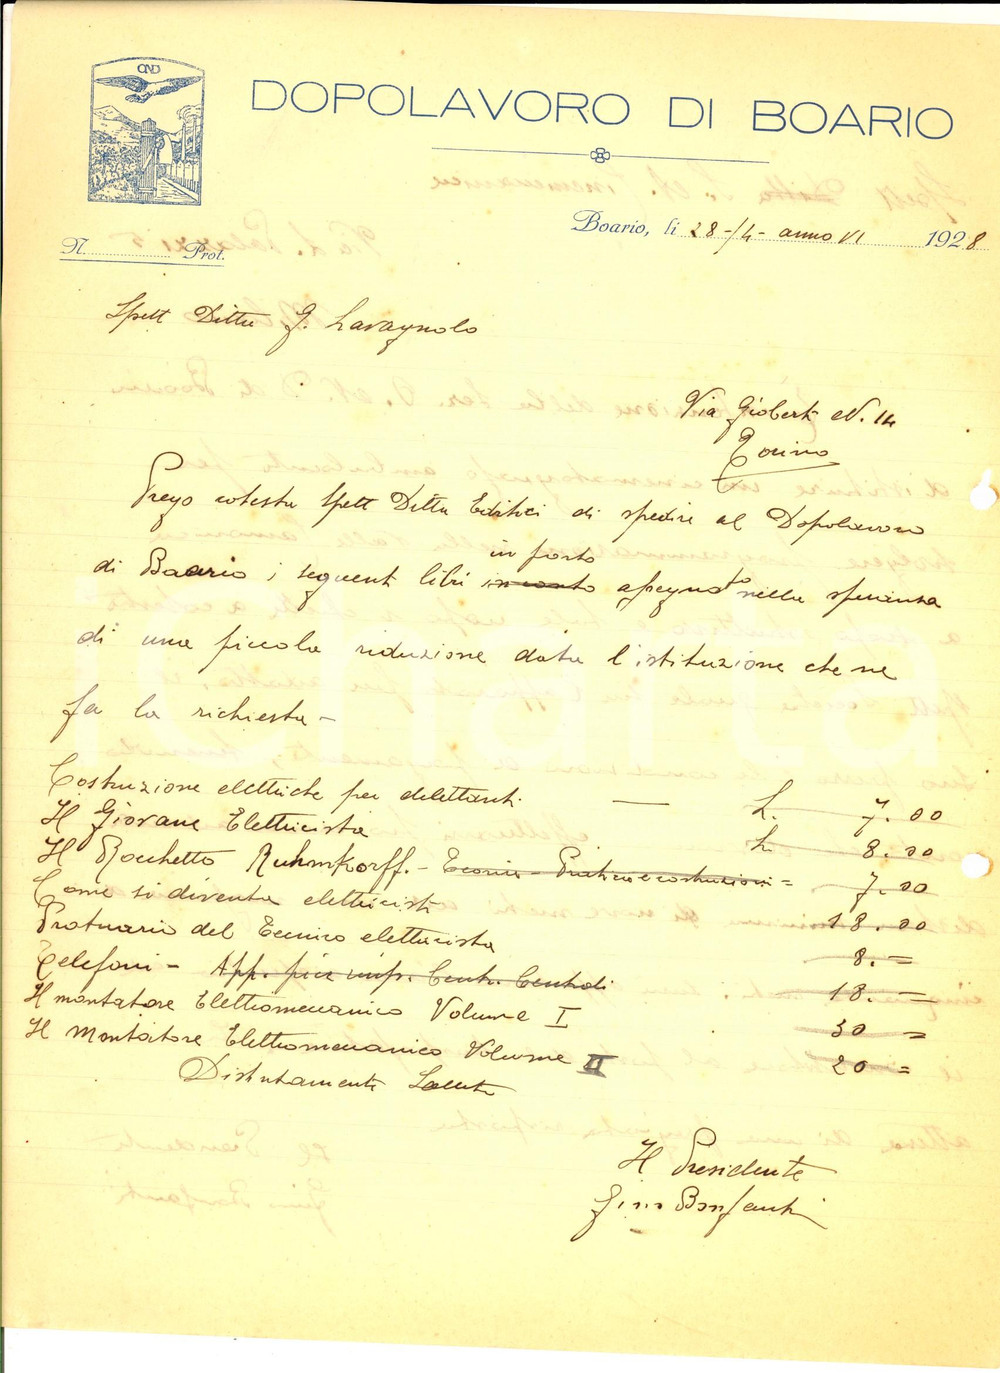 OND
DOPOLAVORO DI BOARIO
N. Prot.
Boario, li 28-/4- anno VI 1928
Spett Ditta G. Lavagnolo
Via Gioberti N. 14
Torino
Prego cotesta Spett Ditta Editrici di spedire al Dopolavoro
in porto
di Boario i seguenti libri in conto assegnato nella speranza
di una piccola riduzione data l'istituzione che ne
fa la richiesta -
Costruzione elettriche per dilettanti. — L. 7.00
Il Giovane Elettricista L. 8.00
Il Rocchetto Ruhmkorff. - Teoria - Pratica e costruzioni = 7.00
Come si diventa elettricisti 18.00
Protuario del Tecnico elettricista 8. =
Telefoni - App. pile imp. Centr. Centrali 18. =
Il montatore Elettromeccanico Volume I 30 =
Il Montatore Elettromeccanico Volume II 20 =
Distintamente Saluti
Il Presidente
Gino Bonfanti